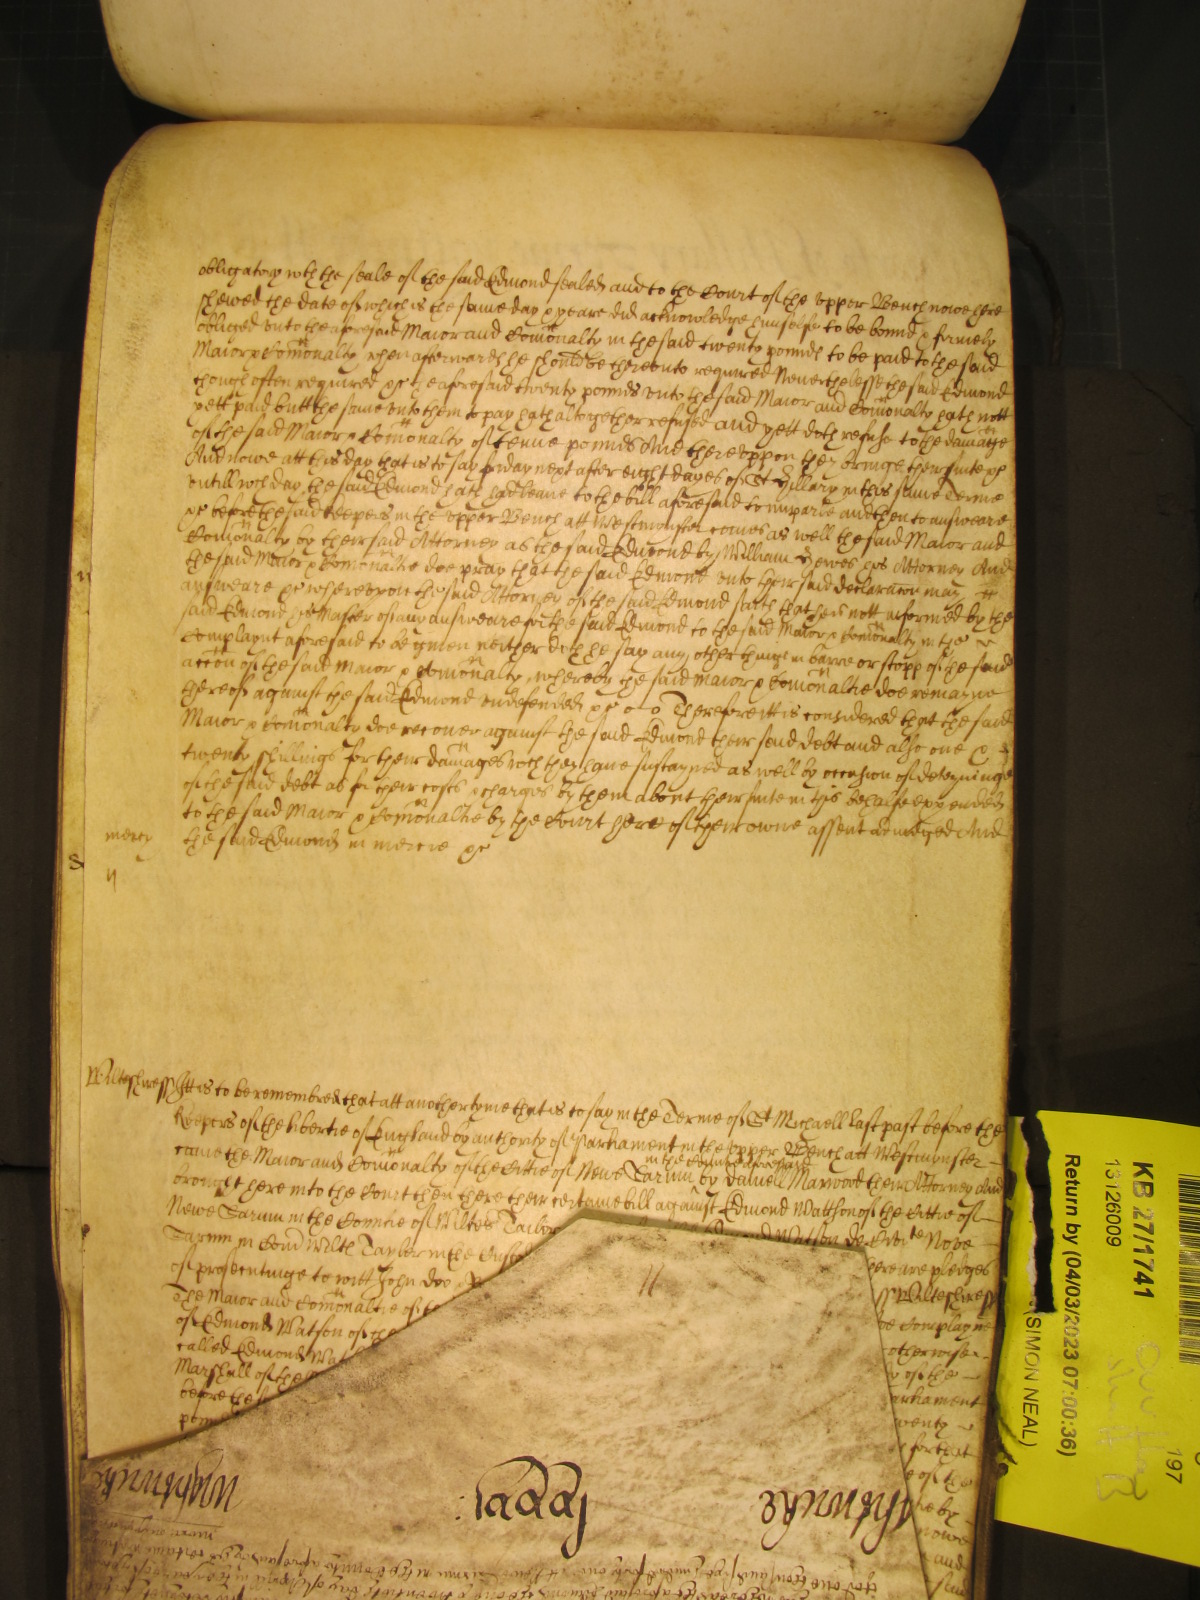 obligatory wth the seale of the said Edmond sealed and to the Court of the upper Bench nowe here
shewed the date of which is the same day & yeare did acknowledge himselfe to be bound & firmely
obliged unto the aforesaid Maior and Comonalty in the said twenty pounds to be paid to the said
Maior & Comonalty when afterwards he should be thereunto required Neverthelesse the said Edmond
though often required &c the aforesaid twenty pounds unto the said Maior and Comonalty hath nott
yett paid butt the same unto them to pay hath altogether refused and yett doth refuse to the damage
of the said Maior & Comonalty of tenne pounds And thereuppon they bringe their suite &c
And nowe att this day that is to say fryday next after eight dayes of St Hillary in this same Terme
untill wch day the said Edmond hath had leave to the bill aforesaid to imparle and then to answeare
&c before the said Keepers in the upper Bench att Westminster comes as well the said Maior and
Comonalty by their said Attorney as the said Edmond by William Hewes his Attorney And
the said Maior & Comonaltie doe pray that the said Edmond unto their said declaracon may
answeare &c whereupon the said Attorney of the said Edmond saith that he is nott informed by the
said Edmond his Master of any answeare for the said Edmond to the said Maior & Comonalty in the
Complaynt aforesaid to be given neither doth he say any other thinge in barre or stopp of the said
accon of the said Maior & Comonalty whereby the said Maior & Comonaltie doe remayne
thereof against the said Edmond undefended &c Therefore itt is considered that the said
Maior & Comonalty doe recover against the said Edmond their said debt and also one &
twenty shillings for their damages wch they have sustayned as well by occasion of deteyninge
of the said debt as for their costs & charges by them about their suite in this behalfe expended
to the said Maior & Comonaltie by the Court here of their owne assent adiudged And
mercy the said Edmond in mercie &c
Wilteshire ss Itt is to be remembred that att another tyme that is to say in the Terme of St Michaell last past before the
Keepers of the libertie of England by authority of Parliament in the upper Bench att Westminster
came the Maior and Comonalty of the Cittie of Newe Sarum in the Countie aforesaid by Daniell Marwood their Attorney And
brought here into the Court then there their certaine bill against Edmond Wattson of the Cittie of
Newe Sarum in the Countie of Wiltes Taylor
Sarum in Com Wiltes Taylor in the Custody
Watson de Civite Nove
of prosecutinge to witt John Doe
here are pledges
The Maior and Comonaltie of
ss Wilteshire ss
of Edmond Watson of the
complayne
called Edmond Wat
otherwise
Marshall of the
of the
before the
Parliament
twenty
for that
of the
by
nowe
and
Wightwicke
Wightwicke
KB 27/1741
13126009
Return by (04/03/2023 07:00:36)
(SIMON NEAL)
197